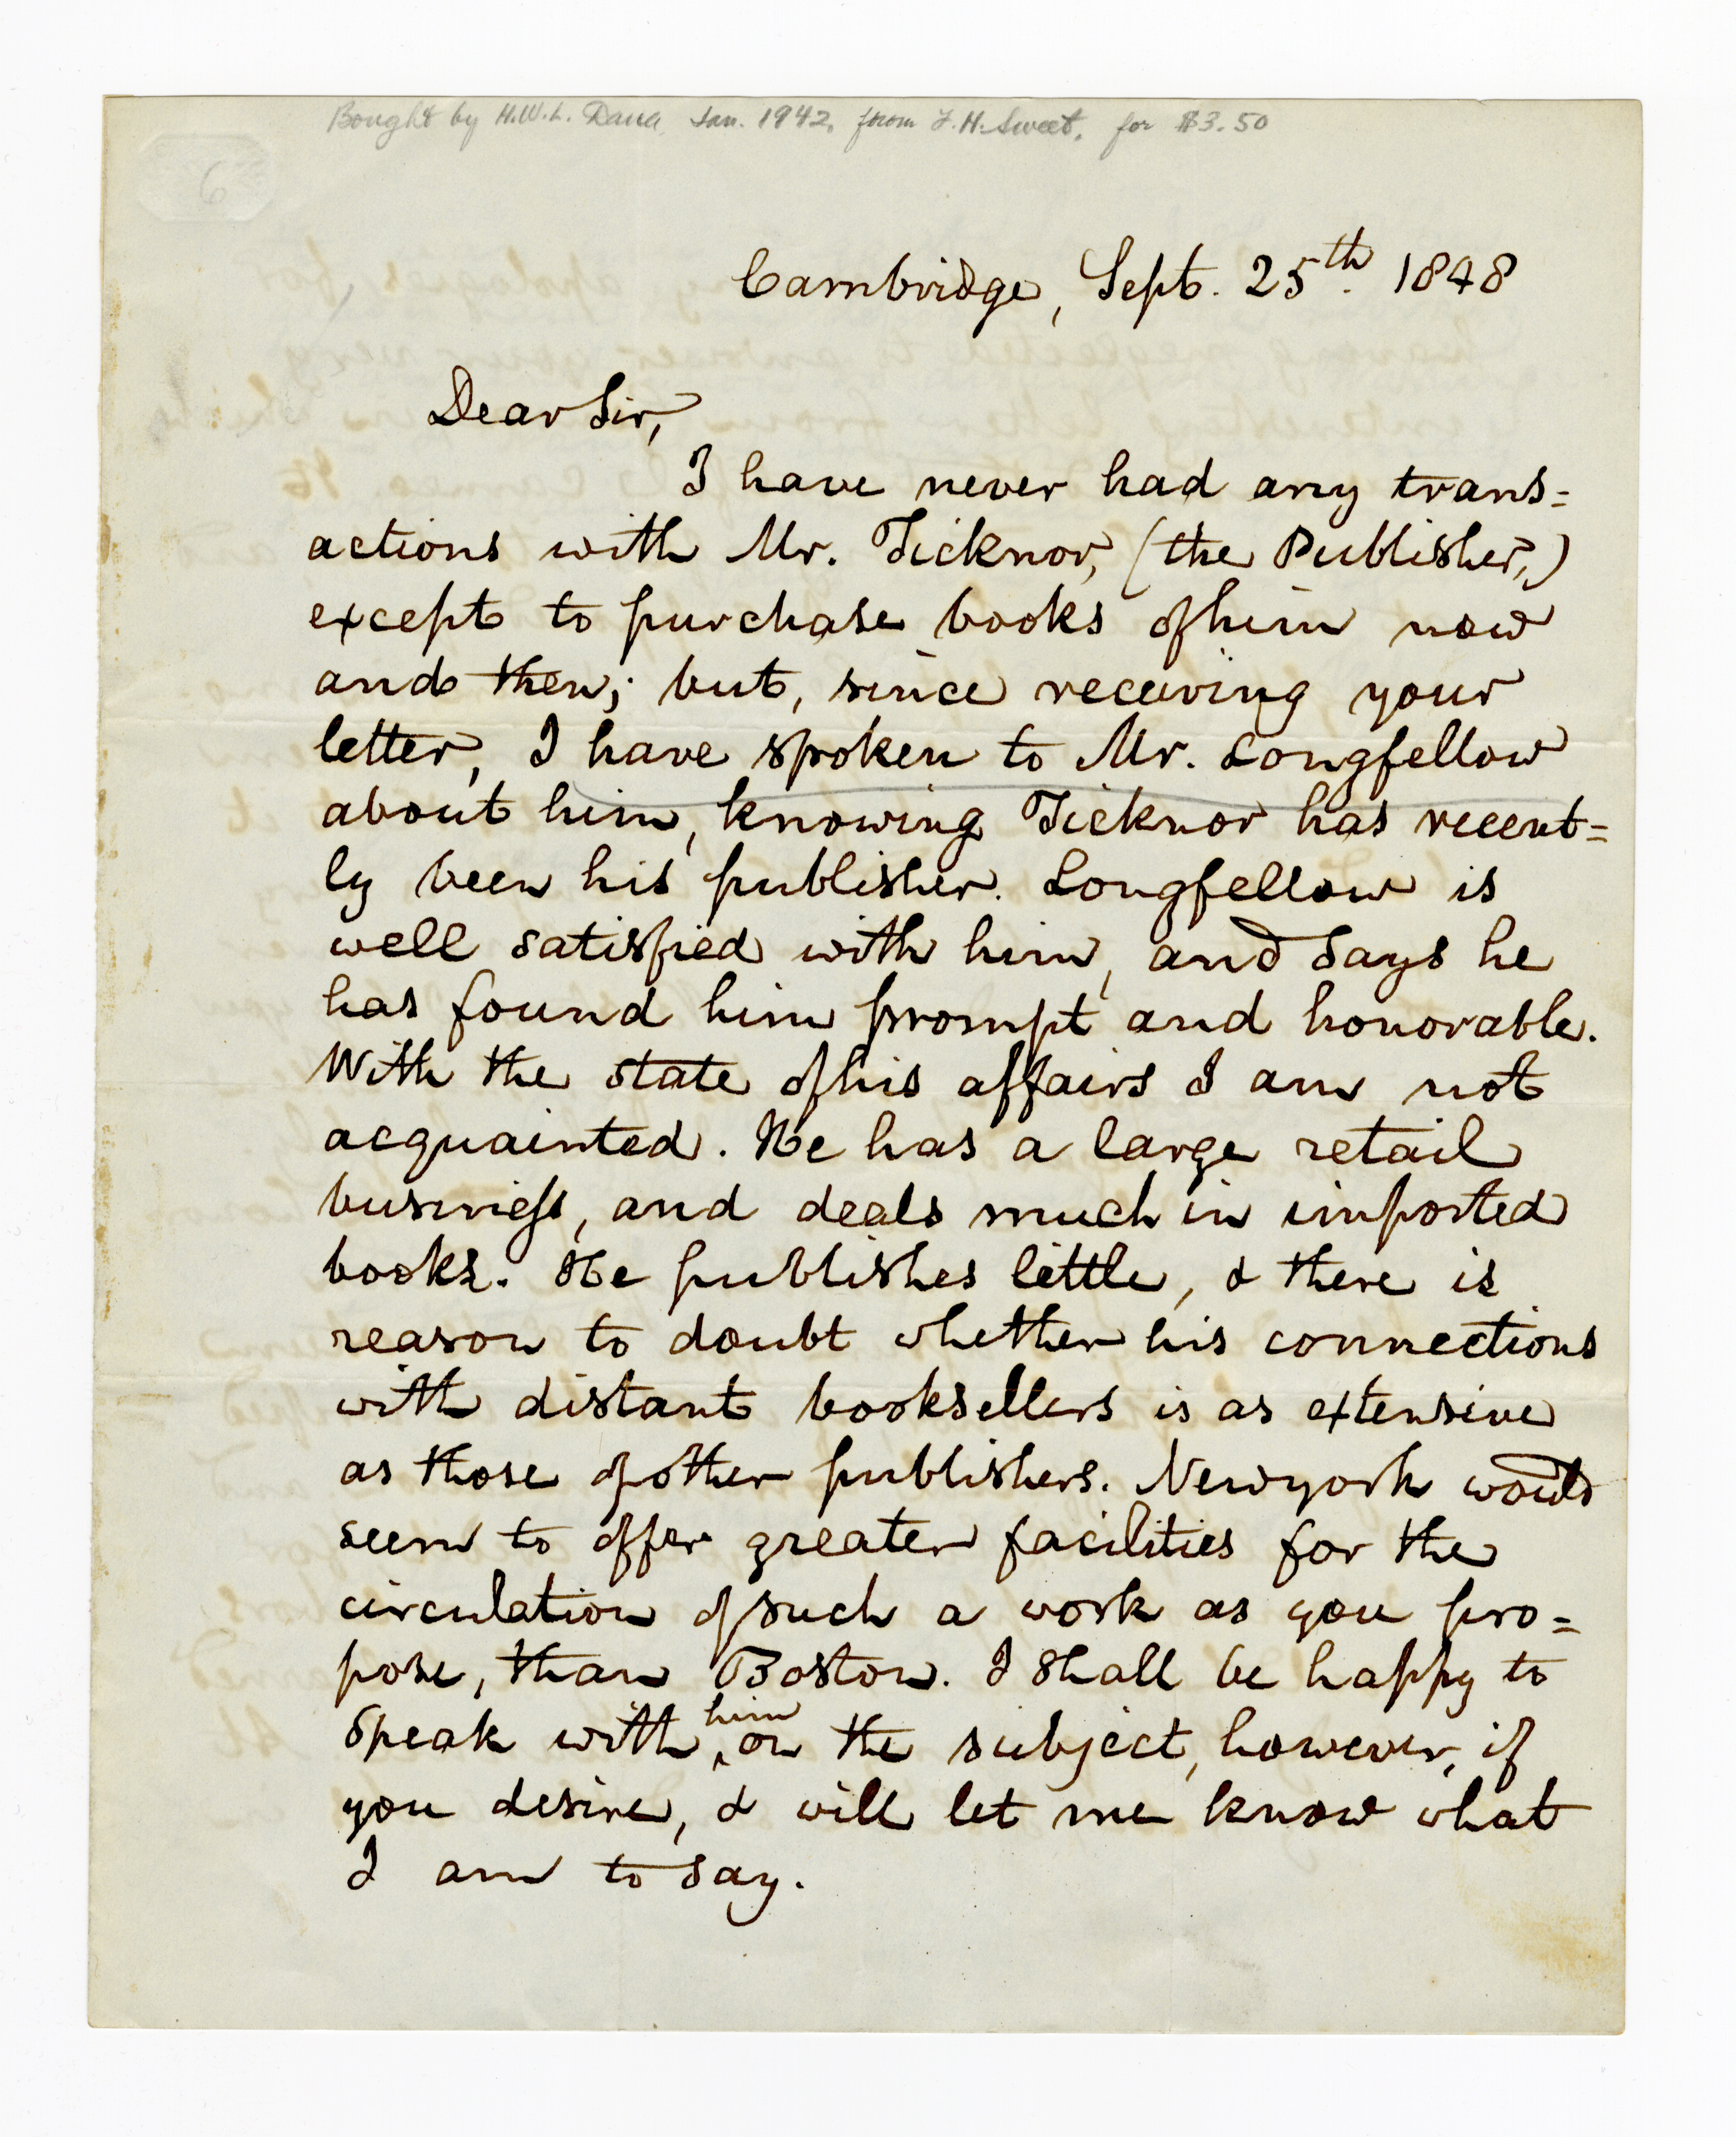 Bought by H.W.L. Dana Jan. 1942. from F.H. Sweet, for $3.50
6
Cambridge, Sept. 25th. 1848
Dear Sir,
I have never had any trans=
actions with Mr. Ticknor, (the Publisher,)
except to purchase books of him now
and then; but, since receiving your
letter, I have spoken to Mr. Longfellow
about him, knowing Ticknor has recent=
ly been his publisher. Longfellow is
well satisfied with him, and says he
has found him prompt and honorable.
With the state of his affairs I am not
acquainted. He has a large retail
business, and deals much in imported
books. He publishes little, & there is
reason to doubt whether his connections
with distant booksellers is as extensive
as those of other publishers. Newyork would
seem to offer greater facilities for the
circulation of such a work as you pro=
pose, than Boston. I shall be happy to
speak with him on the subject, however, if
you desire, & will let me know what
I am to say.